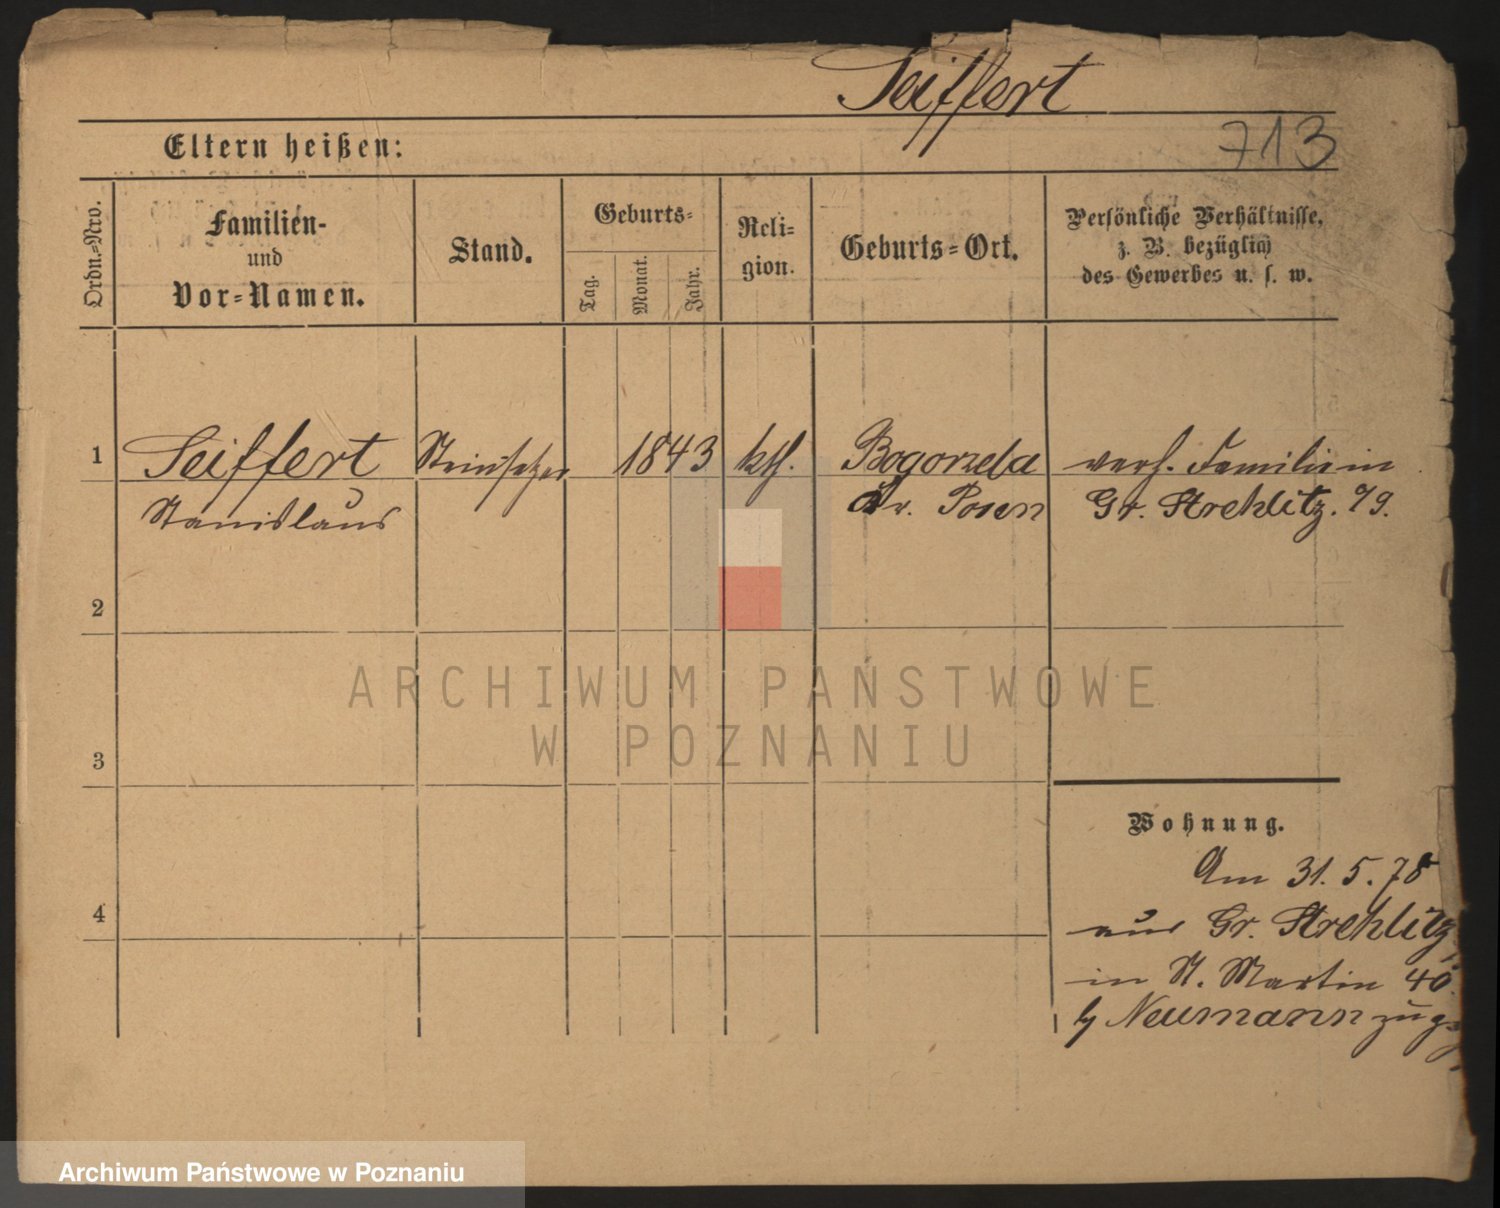 Seiffert
Eltern heißen:
713
Ordn.-Nro.
Familien-
und
Vor-Namen.
Stand.
Geburts-
Tag.
Monat.
Jahr.
Reli-
gion.
Geburts-Ort.
Persönliche Verhältnisse,
z. B. bezüglich
des Gewerbes u. s. w.
1
Seiffert
Steinsetzer
1843
kth.
Bogorzela
verh. Familie in
Stanislaus
Kr. Posen
Gr. Strehlitz. O/S.
2
ARCHIWUM PAŃSTWOWE
W POZNANIU
3
Wohnung.
Am 31. 5. 78
4
aus Gr. Strehlitz
in St. Martin 40.
b/ Neumann
Archiwum Państwowe w Poznaniu